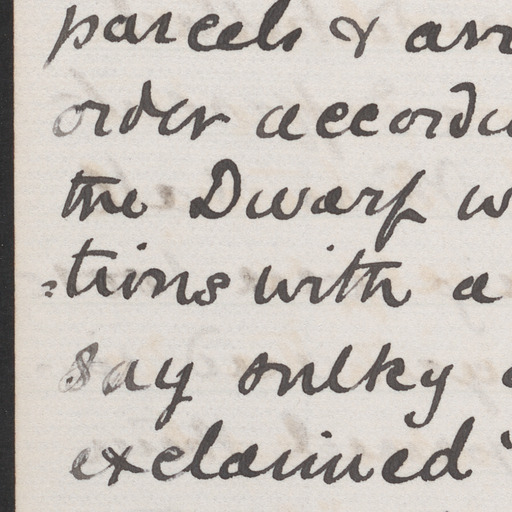 parcels & arr
order accordi
the Dwarf w
=tions with a
say sulky
exclaimed "